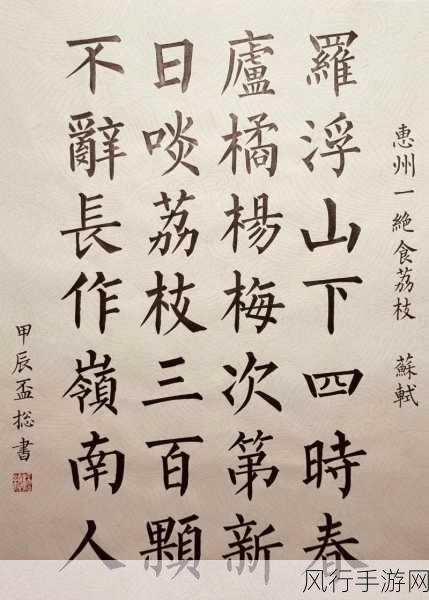 惠州一絶食荔枝 蘇軾
羅浮山下四時春
盧橘楊梅次第新
日啖荔枝三百顆
不辭長作嶺南人
甲辰孟㧾書
风行手游网